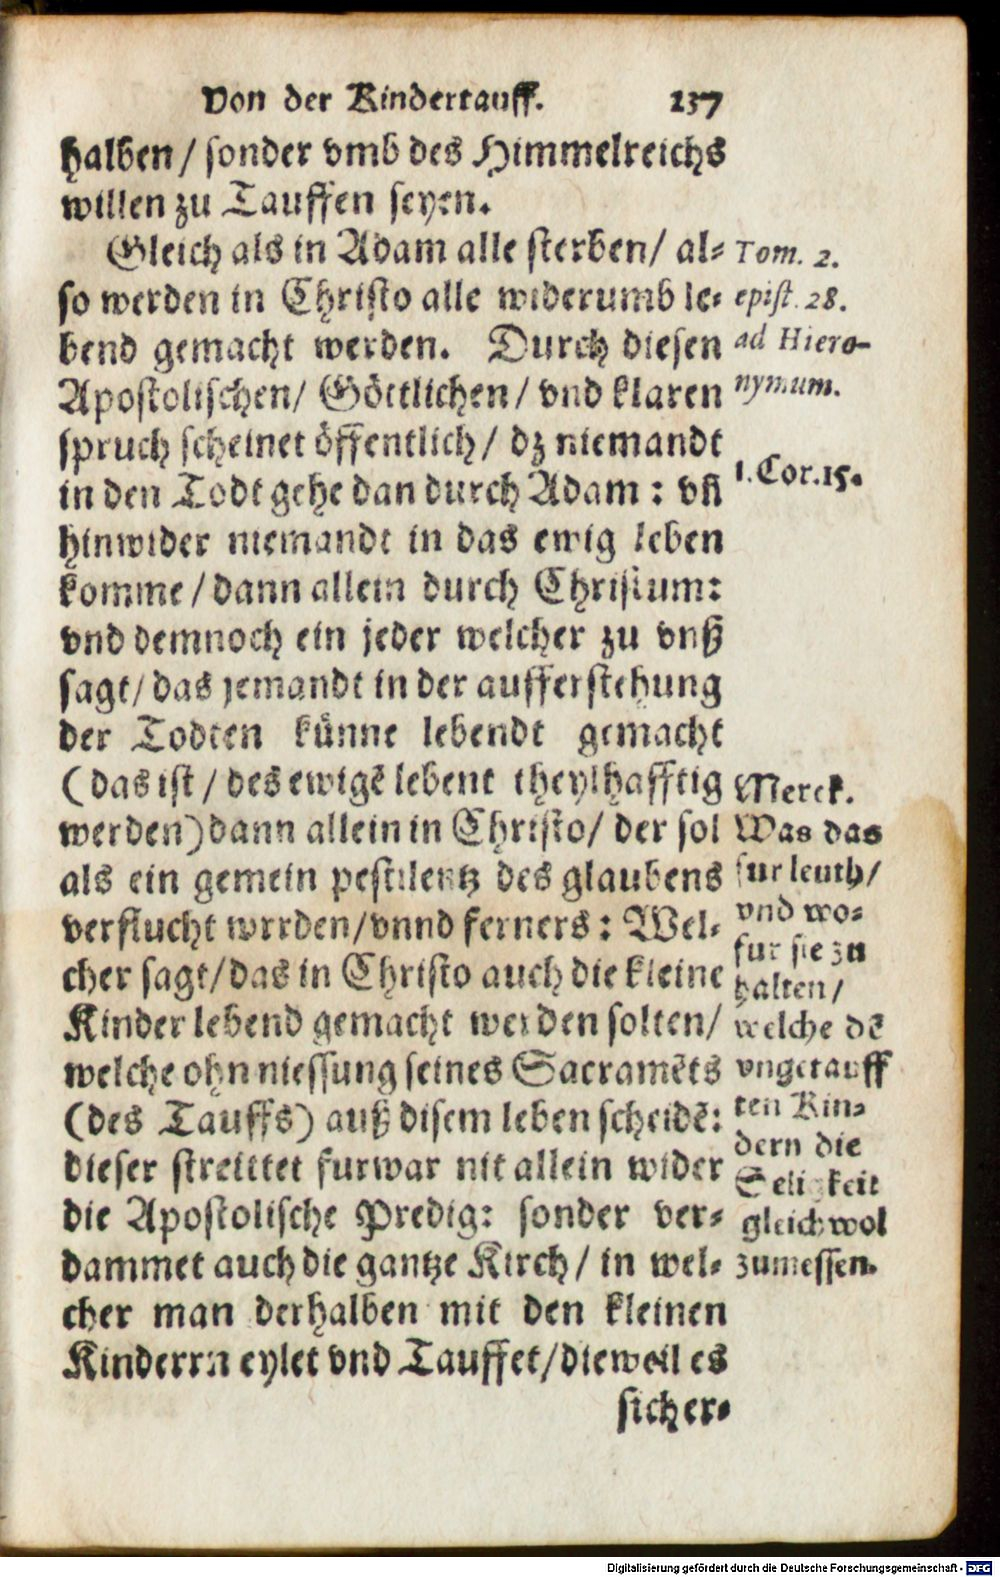 Von der Kindertauff. 137
halben / sonder vmb des Himmelreichs
willen zu Tauffen seyen.
Gleich als in Adam alle sterben / al⸗
so werden in Christo alle widerumb le⸗
bend gemacht werden. Durch diesen
Apostolischen / Göttlichen / vnd klaren
spruch scheinet öffentlich / dz niemandt
in den Todt gehe dan durch Adam : vn̄
hinwider niemandt in das ewig leben
komme / dann allein durch Christum:
vnd demnoch ein jeder welcher zu vnß
sagt / das jemandt in der aufferstehung
der Todten künne lebendt gemacht
(das ist / des ewigē lebent theylhafftig
werden) dann allein in Christo / der sol
als ein gemein pestilentz des glaubens
verflucht wrrden / vnnd ferners : Wel⸗
cher sagt / das in Christo auch die kleine
Kinder lebend gemacht werden solten /
welche ohn niessung seines Sacramēts
(des Tauffs) auß disem leben scheidē:
dieser streittet furwar nit allein wider
die Apostolische Predig: sonder ver⸗
dammet auch die gantze Kirch / in wel⸗
cher man derhalben mit den kleinen
Kinderrn eylet vnd Tauffet / dieweil es
sicher⸗
Tom. 2.
epist. 28.
ad Hiero-
nymum.
1. Cor. 15.
Merck.
Was das
fur leuth /
vnd wo⸗
fur sie zu
halten /
welche dē
vngetauff
ten Kin⸗
dern die
Seligkeit
gleichwol
zumessen.
Digitalisierung gefördert durch die Deutsche Forschungsgemeinschaft - DFG